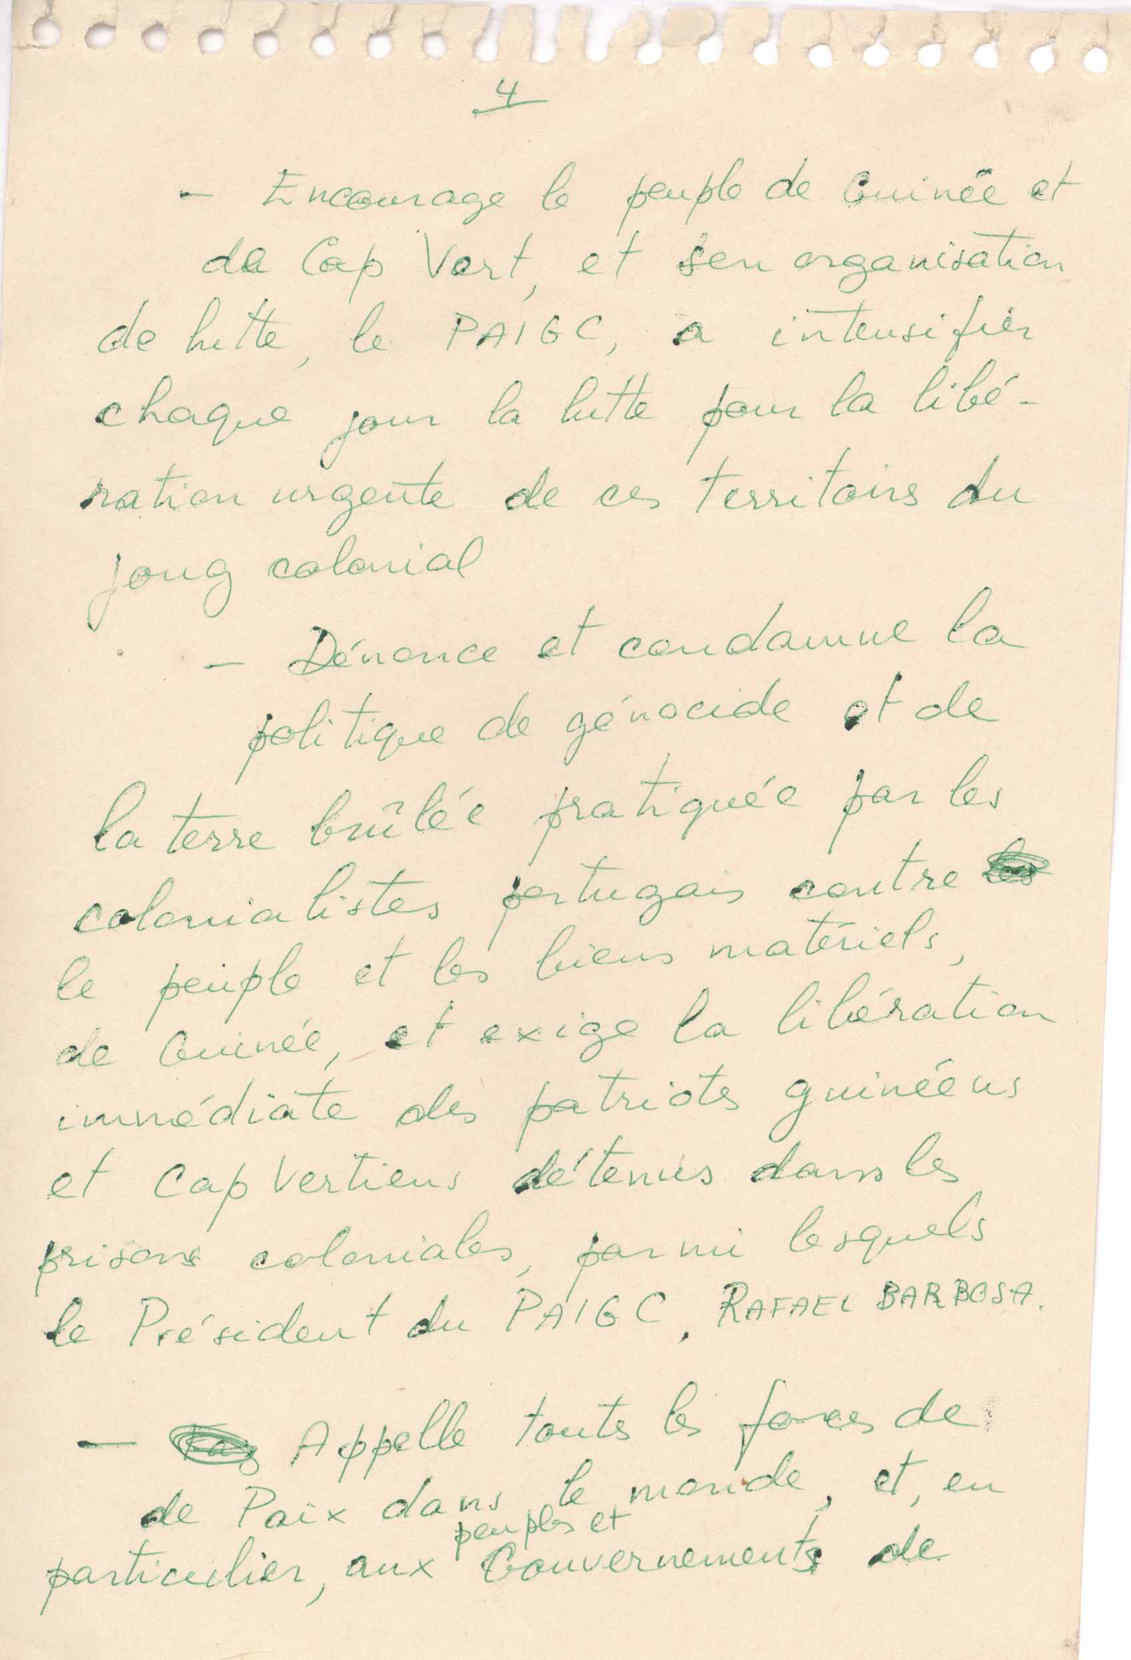 4
- Encourage le peuple de Guinée et
du Cap Vert, et son organisation
de lutte, le PAIGC, a intensifier
chaque jour la lutte pour la libé-
ration urgente de ces territoires du
joug colonial
- Dénonce et condamne la
politique de génocide et de
la terre brûlée pratiquée par les
colonialistes portugais contre
le peuple et les biens matériels,
de Guinée, et exige la libération
immédiate des patriotes guinéens
et Cap Vertiens détenus dans les
prisons coloniales, parmi lesquels
le Président du PAIGC, RAFAEL BARBOSA.
- Appelle toutes les forces de
de Paix dans le monde, et, en
peuples et
particulier, aux Gouvernements de